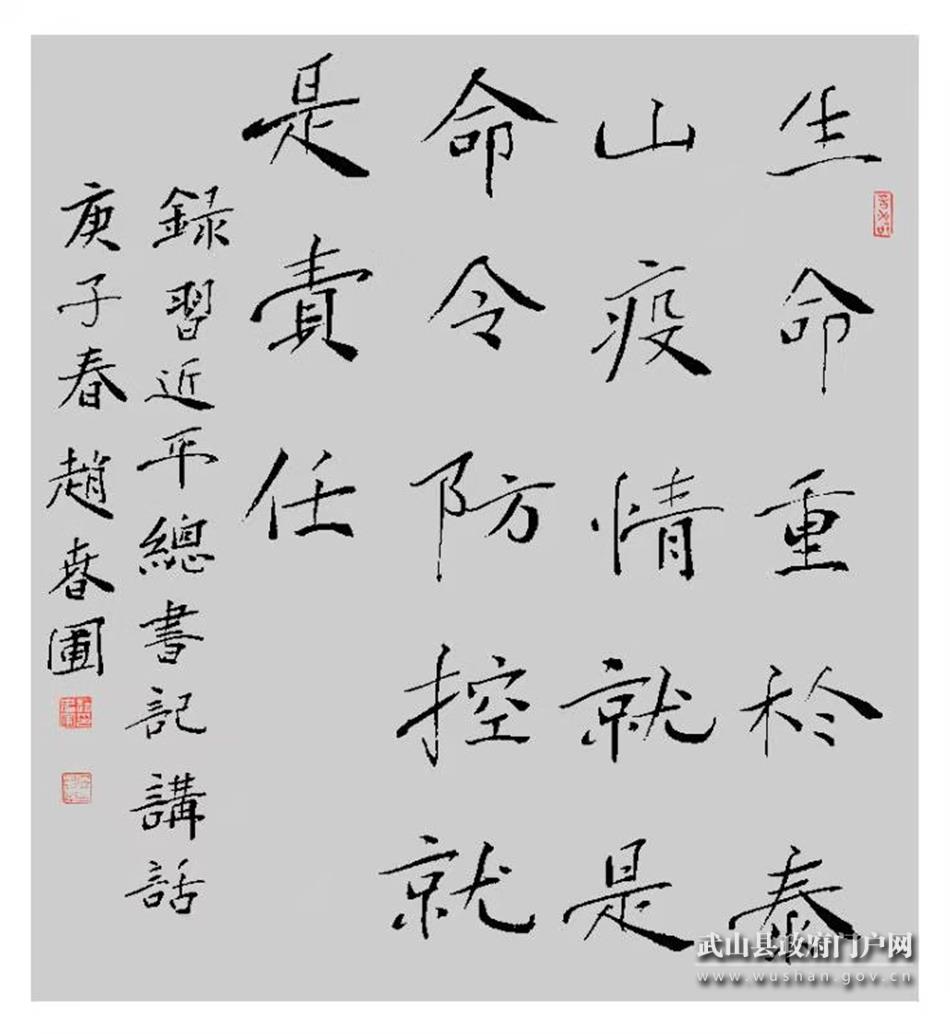 生命重於泰
山疫情就是
命令防控就
是責任
録習近平總書記講話
庚子春趙春圃
武山县政府门户网
www.wushan.gov.cn